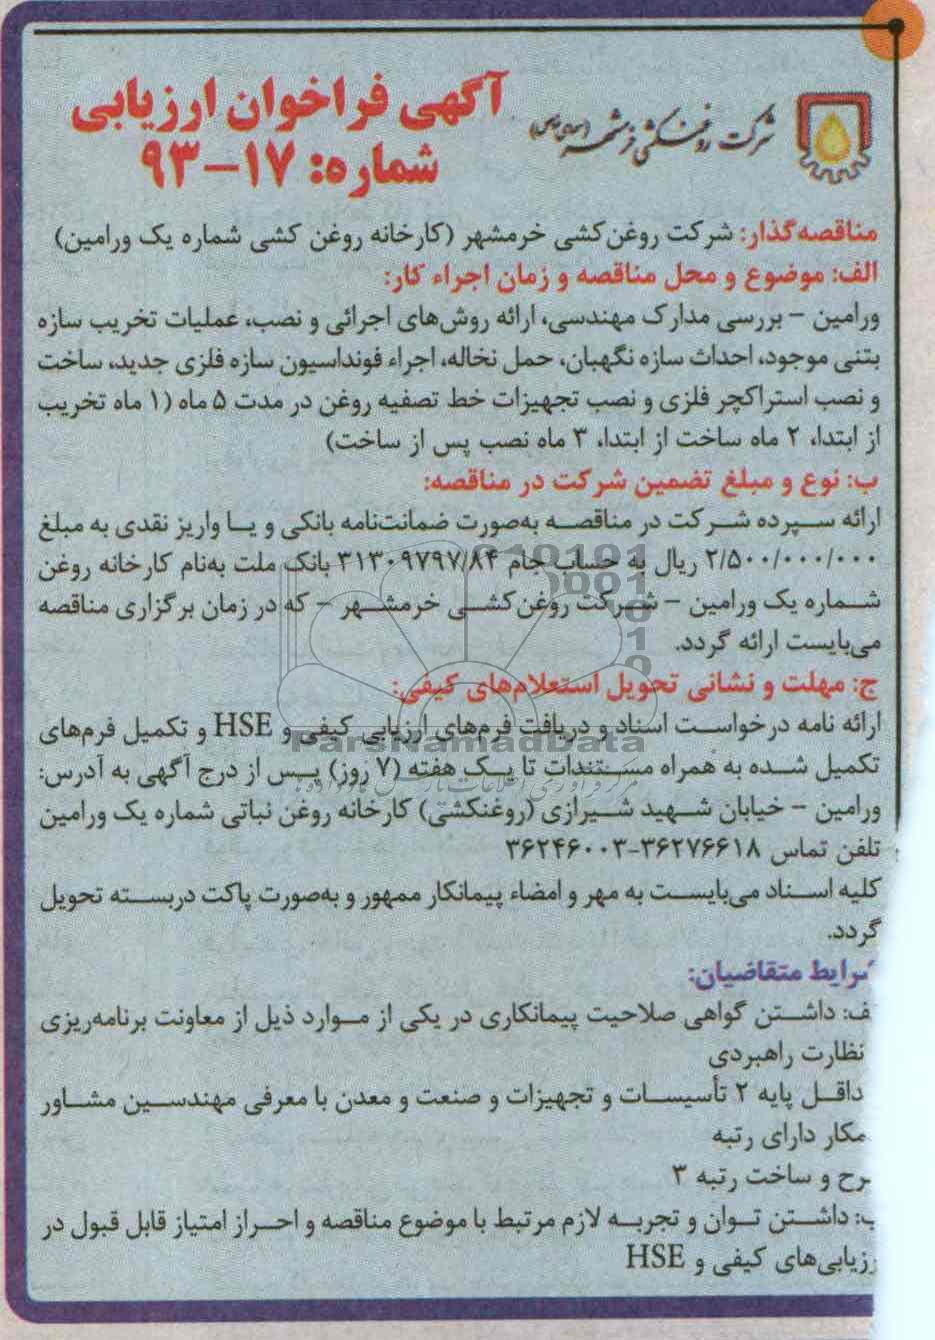 شرکت روغنکشی خرمشهر (سهامی خاص)
آگهی فراخوان ارزیابی
شماره: ۱۷-۹۳
مناقصه‌گذار: شرکت روغن‌کشی خرمشهر (کارخانه روغن کشی شماره یک ورامین)
الف: موضوع و محل مناقصه و زمان اجراء کار:
ورامین - بررسی مدارک مهندسی، ارائه روش‌های اجرائی و نصب، عملیات تخریب سازه
بتنی موجود، احداث سازه نگهبان، حمل نخاله، اجراء فونداسیون سازه فلزی جدید، ساخت
و نصب استراکچر فلزی و نصب تجهیزات خط تصفیه روغن در مدت ۵ ماه (۱ ماه تخریب
از ابتدا، ۲ ماه ساخت از ابتدا، ۳ ماه نصب پس از ساخت)
ب: نوع و مبلغ تضمین شرکت در مناقصه:
ارائه سپرده شرکت در مناقصه به‌صورت ضمانت‌نامه بانکی و یا واریز نقدی به مبلغ
۲/۵۰۰/۰۰۰/۰۰۰ ریال به حساب جام ۳۱۳۰۹۷۹۷/۸۴ بانک ملت به‌نام کارخانه روغن
شماره یک ورامین - شرکت روغن‌کشی خرمشهر - که در زمان برگزاری مناقصه
می‌بایست ارائه گردد.
ج: مهلت و نشانی تحویل استعلام‌های کیفی:
ارائه نامه درخواست اسناد و دریافت فرم‌های ارزیابی کیفی و HSE و تکمیل فرم‌های
تکمیل شده به همراه مستندات تا یک هفته (۷ روز) پس از درج آگهی به آدرس:
ورامین - خیابان شهید شیرازی (روغنکشی) کارخانه روغن نباتی شماره یک ورامین
تلفن تماس ۳۶۲۷۶۶۱۸-۳۶۲۴۶۰۰۳
کلیه اسناد می‌بایست به مهر و امضاء پیمانکار ممهور و به‌صورت پاکت دربسته تحویل
گردد.
شرایط متقاضیان:
لف: داشتن گواهی صلاحیت پیمانکاری در یکی از موارد ذیل از معاونت برنامه‌ریزی
نظارت راهبردی
داقل پایه ۲ تأسیسات و تجهیزات و صنعت و معدن با معرفی مهندسین مشاور
مکار دارای رتبه
رح و ساخت رتبه ۳
ب: داشتن توان و تجربه لازم مرتبط با موضوع مناقصه و احراز امتیاز قابل قبول در
رزیابی‌های کیفی و HSE
ParsNamadData